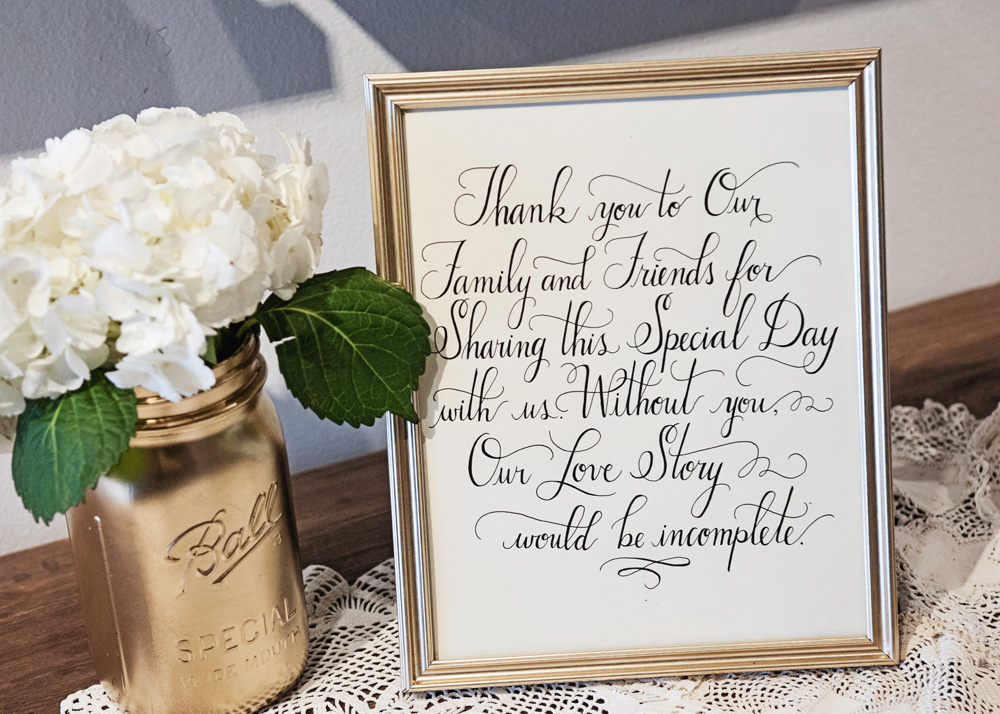 Thank you to Our
Family and Friends for
Sharing this Special Day
with us. Without you,
Our Love Story
would be incomplete.
Ball
SPECIAL
WIDE MOUTH